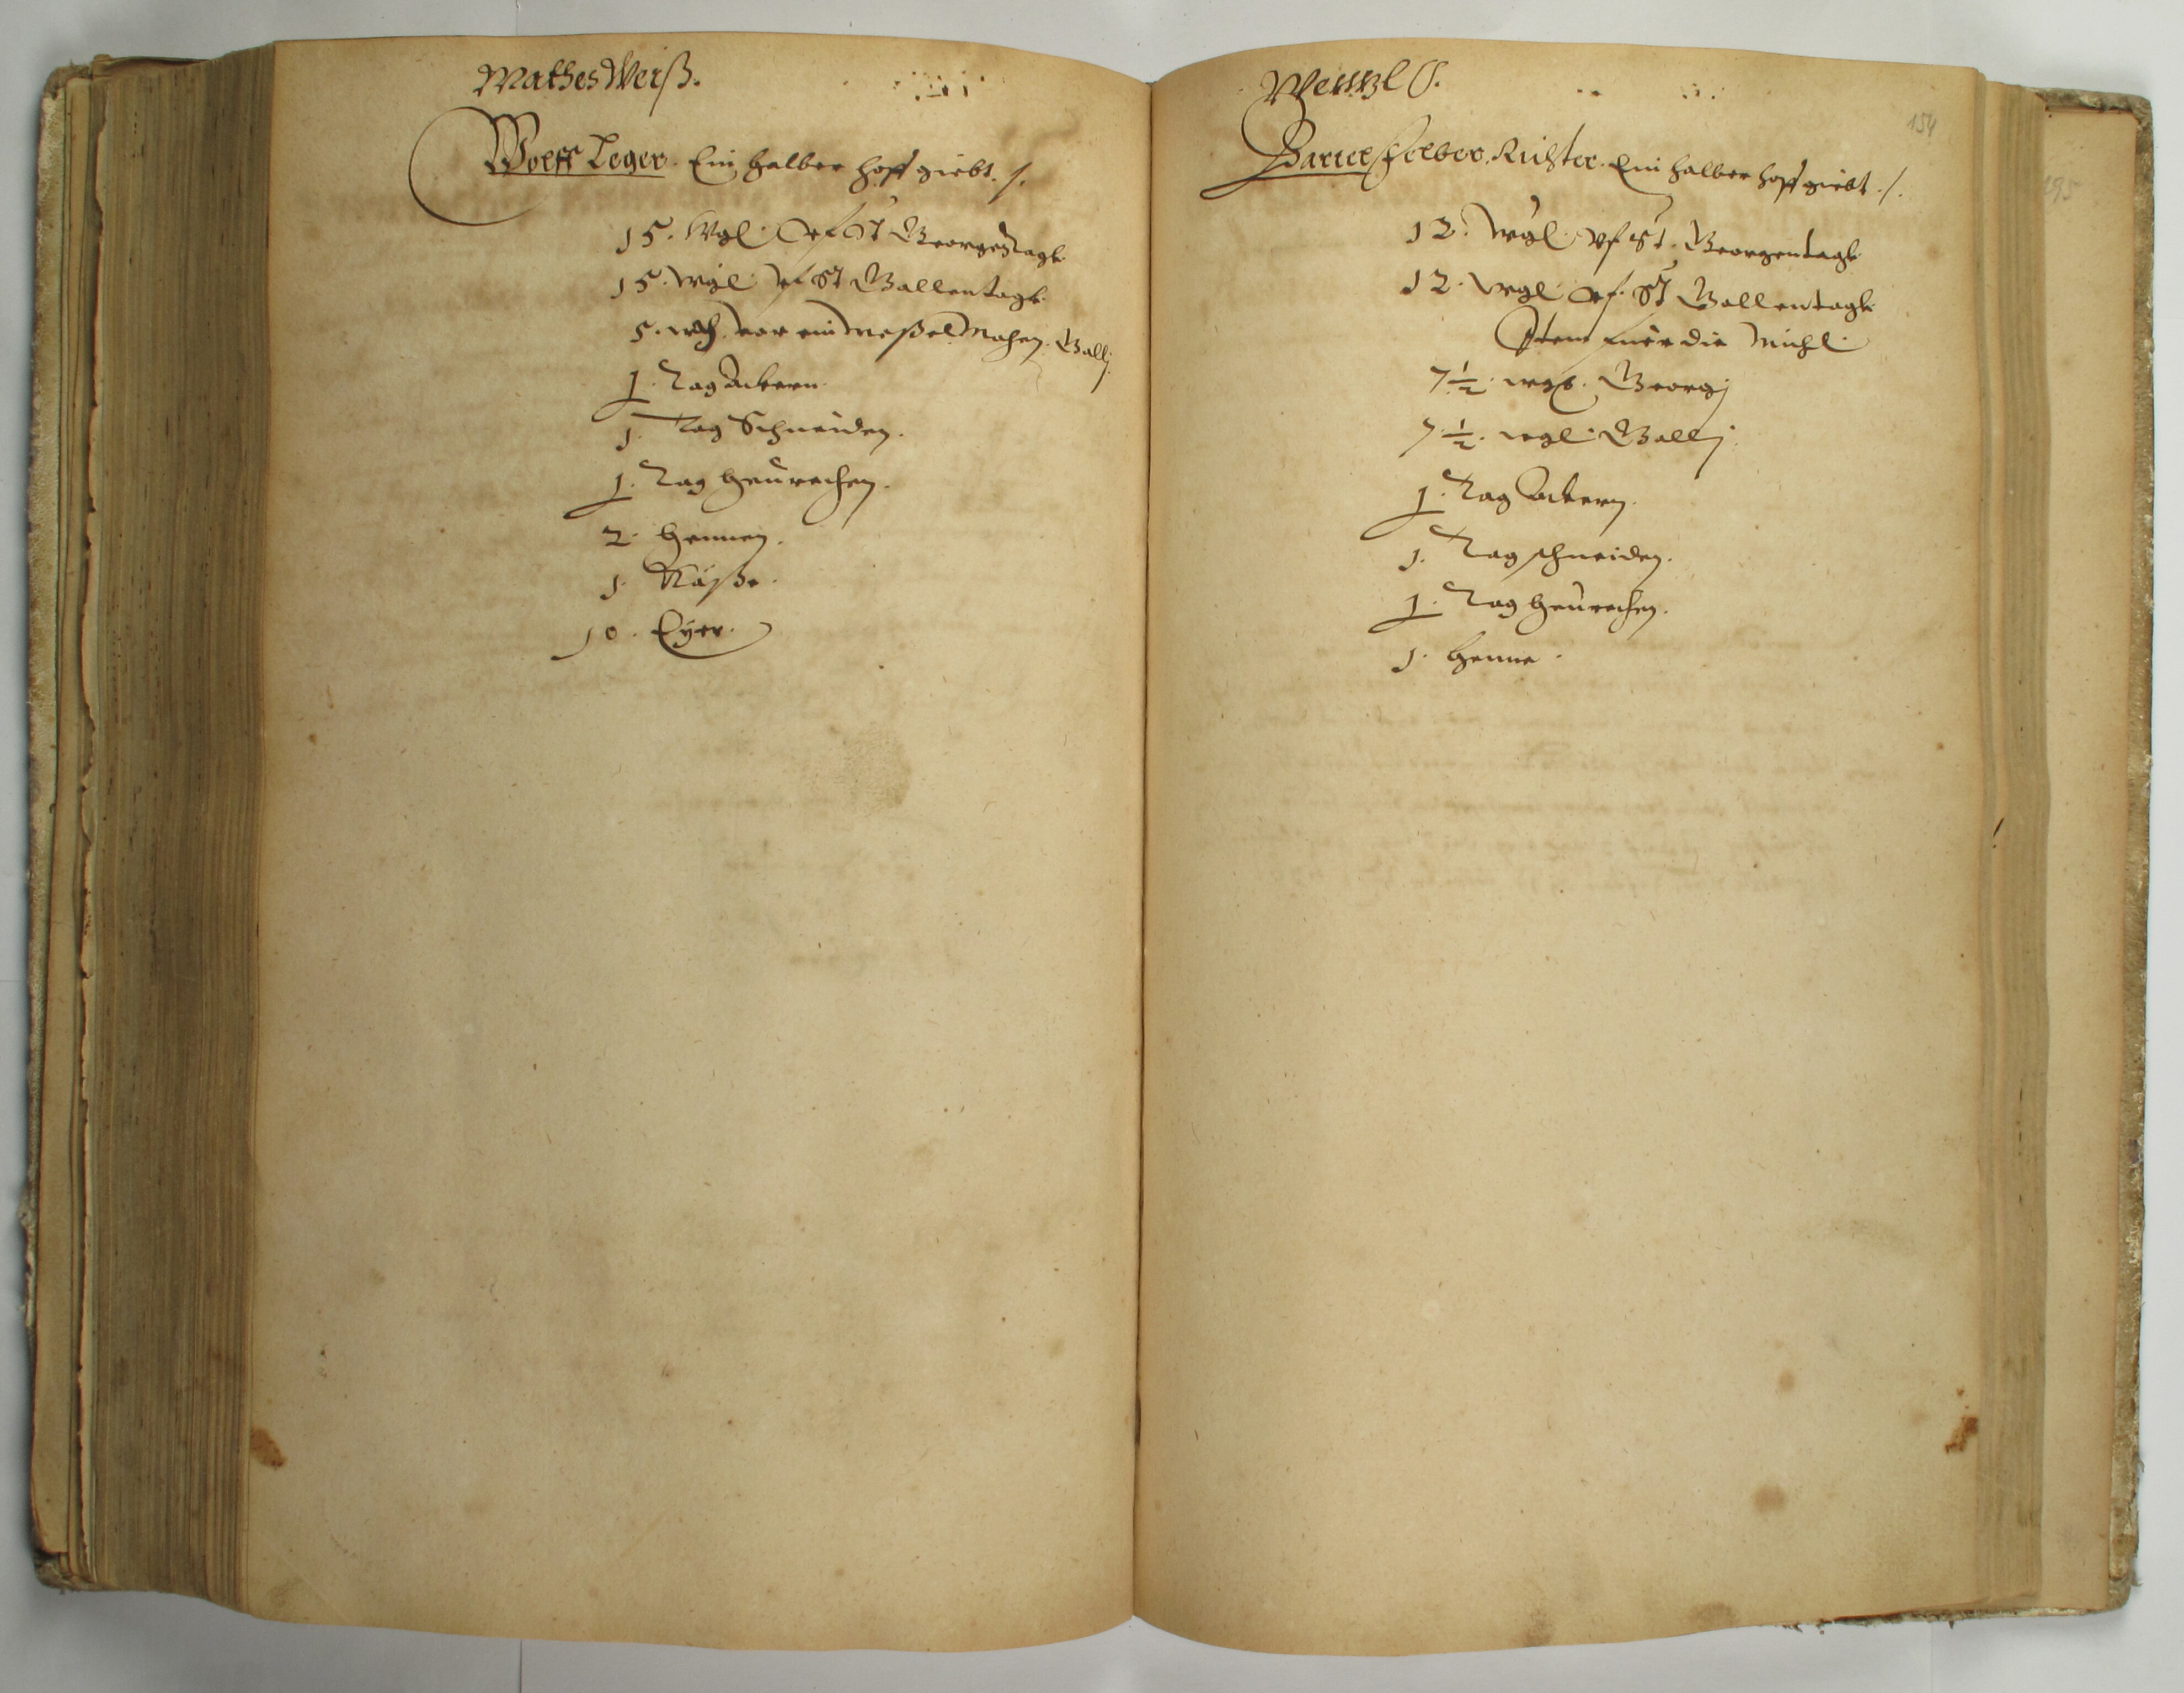 Mathes Weiß.
Wolff Leger. Ein halber hoff giebt. /.
15. Wgl. vf St Georgentagk
15. Wgl. vf St Gallentagk
5. wg. vor ein Meßel Mahen. Gallj
1. Tag Ackern.
1. Tag Schneiden.
1. Tag Heurechen.
2. Hennen.
1. Käße.
10. Eyer.
Wentzl
154
Bartel Felber. Richter. Ein halber hoff giebt. /.
12. Wgl. vf St. Georgentagk
12. Wgl. vf. St Gallentagk
Item fuer die Muhl.
7 1/2. wgl. Georgj
7 1/2. wgl. Gallj
1. Tag Ackern.
1. Tag schneiden.
1. Tag Heurechen.
1. Henne.
195